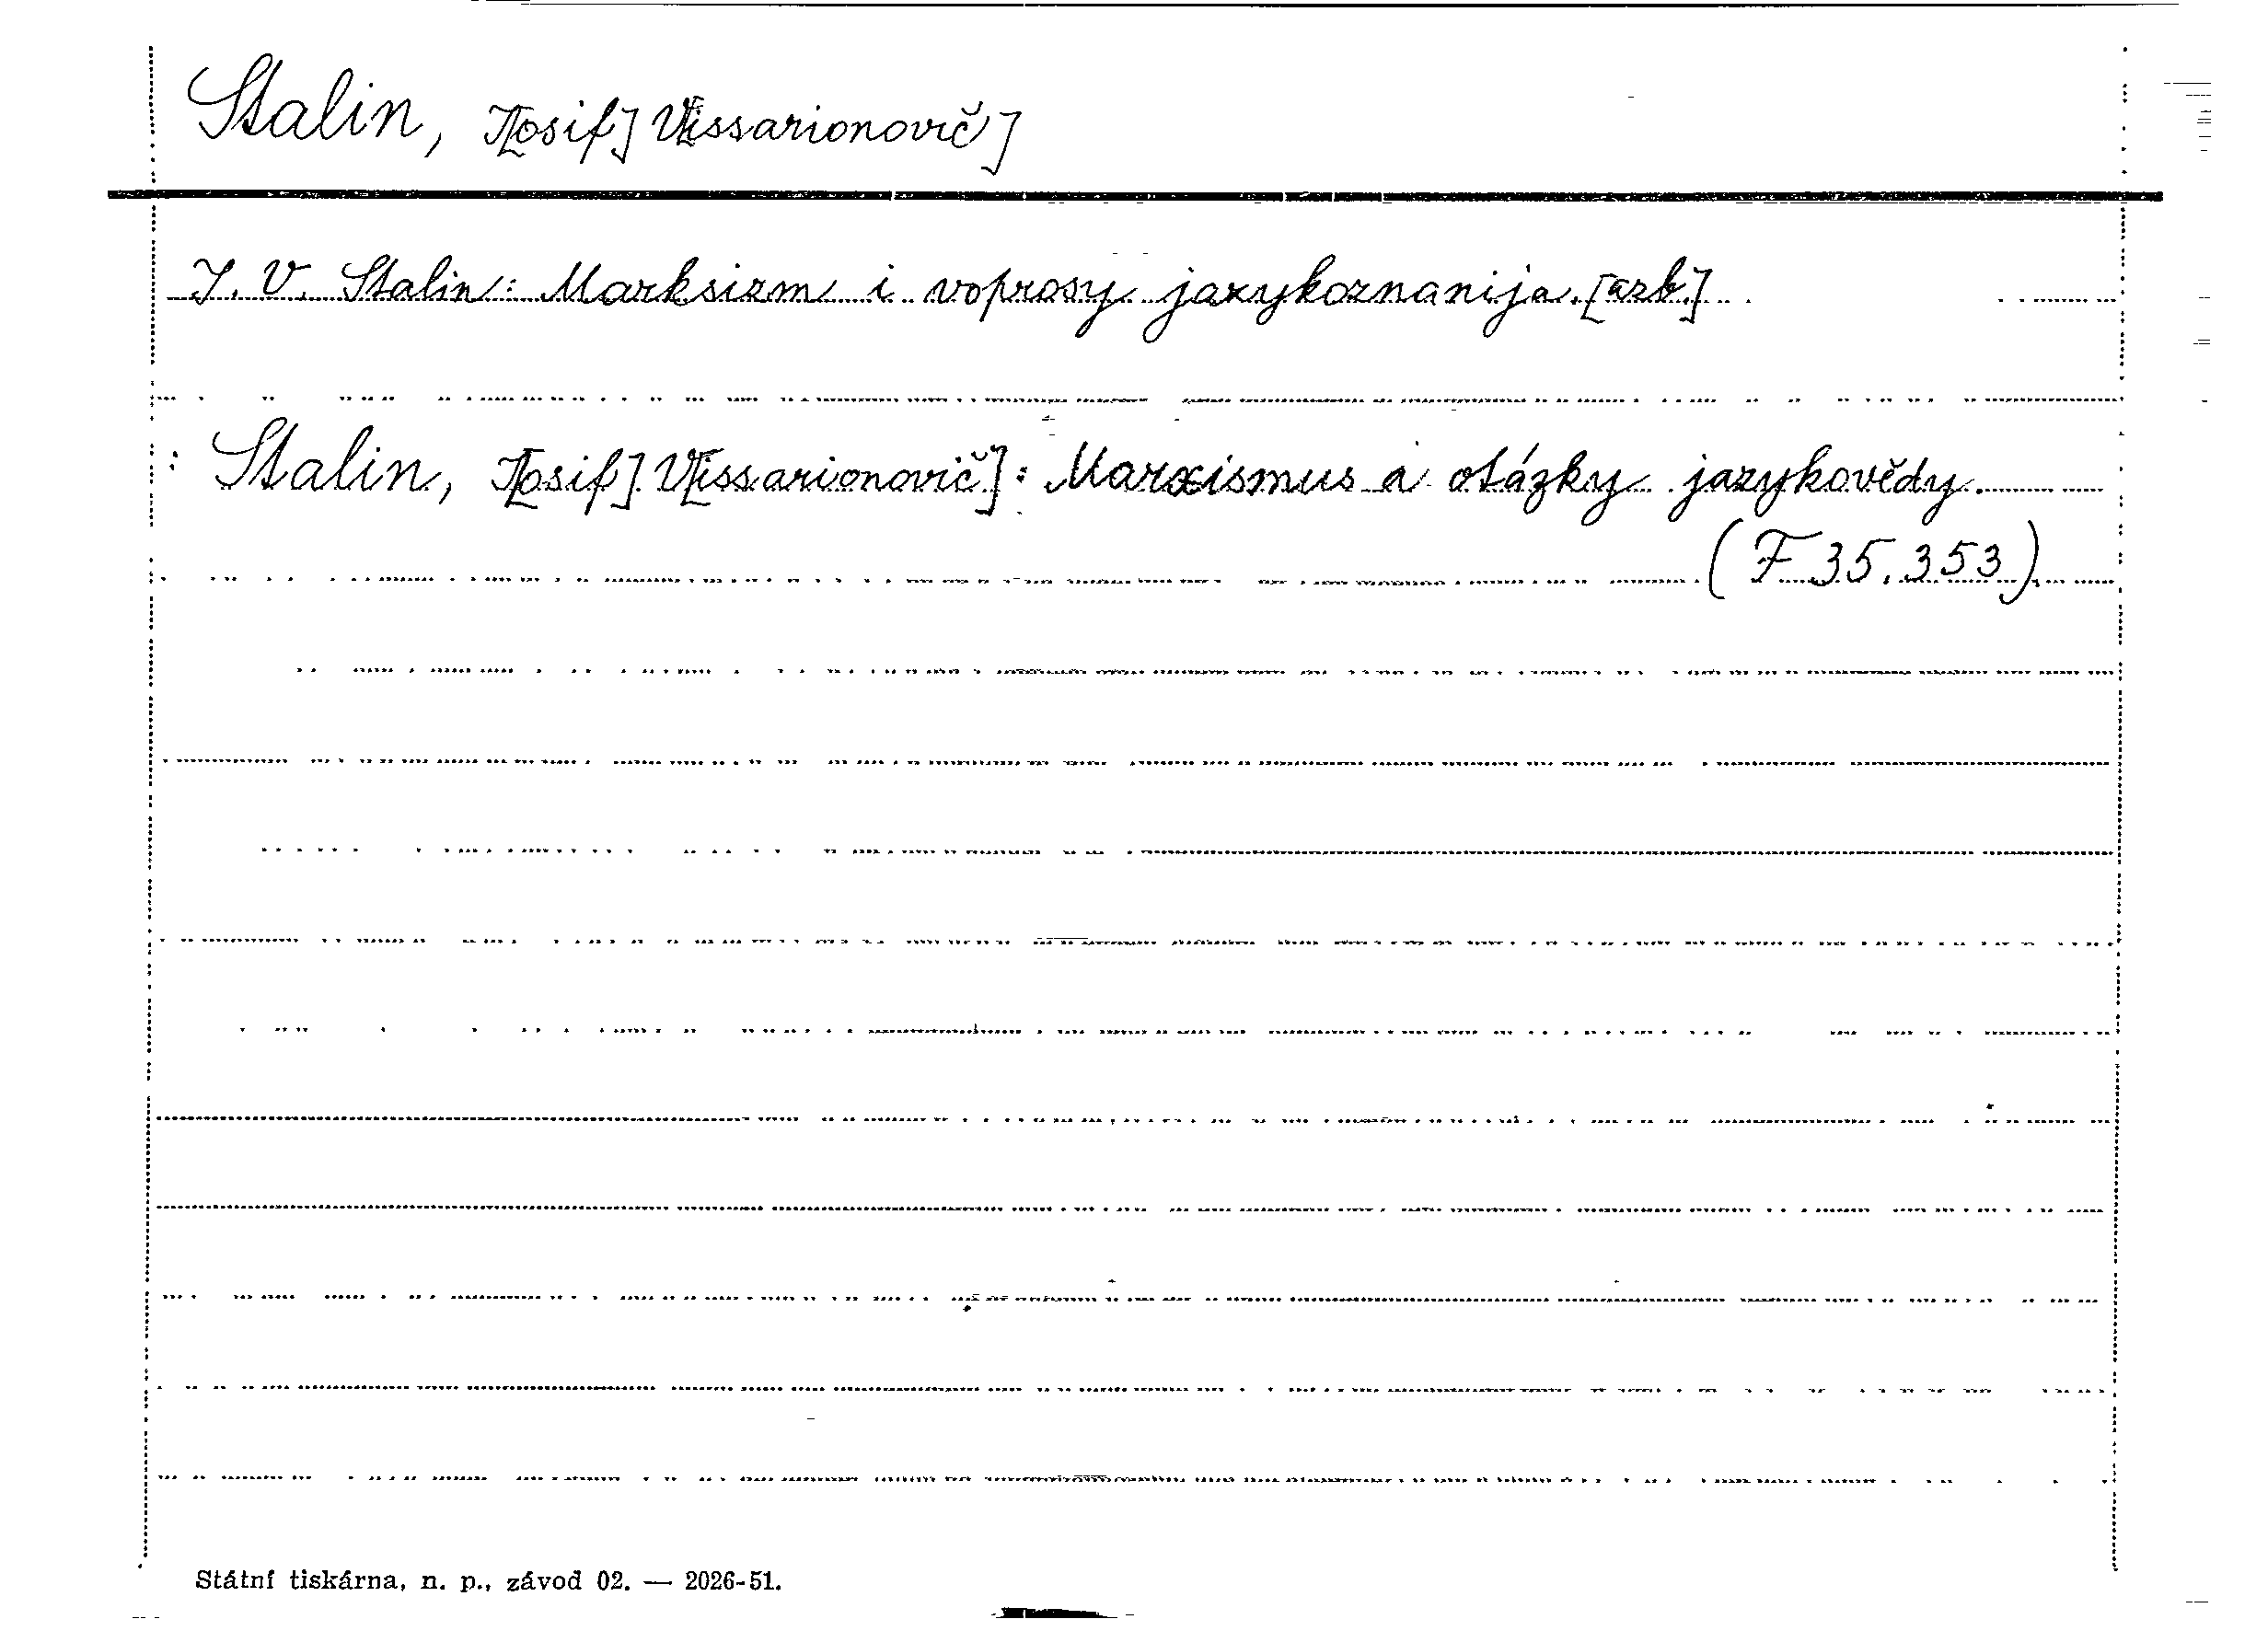 Stalin, J[osif] V[issarionovič]
J. V. Stalin: Marksizm i voprosy jazykoznanija. [azb.]
: Stalin, J[osif] V[issarionovič]: Marxismus a otázky jazykovědy.
(F 35.353)
Státní tiskárna, n. p., závod 02. — 2026-51.